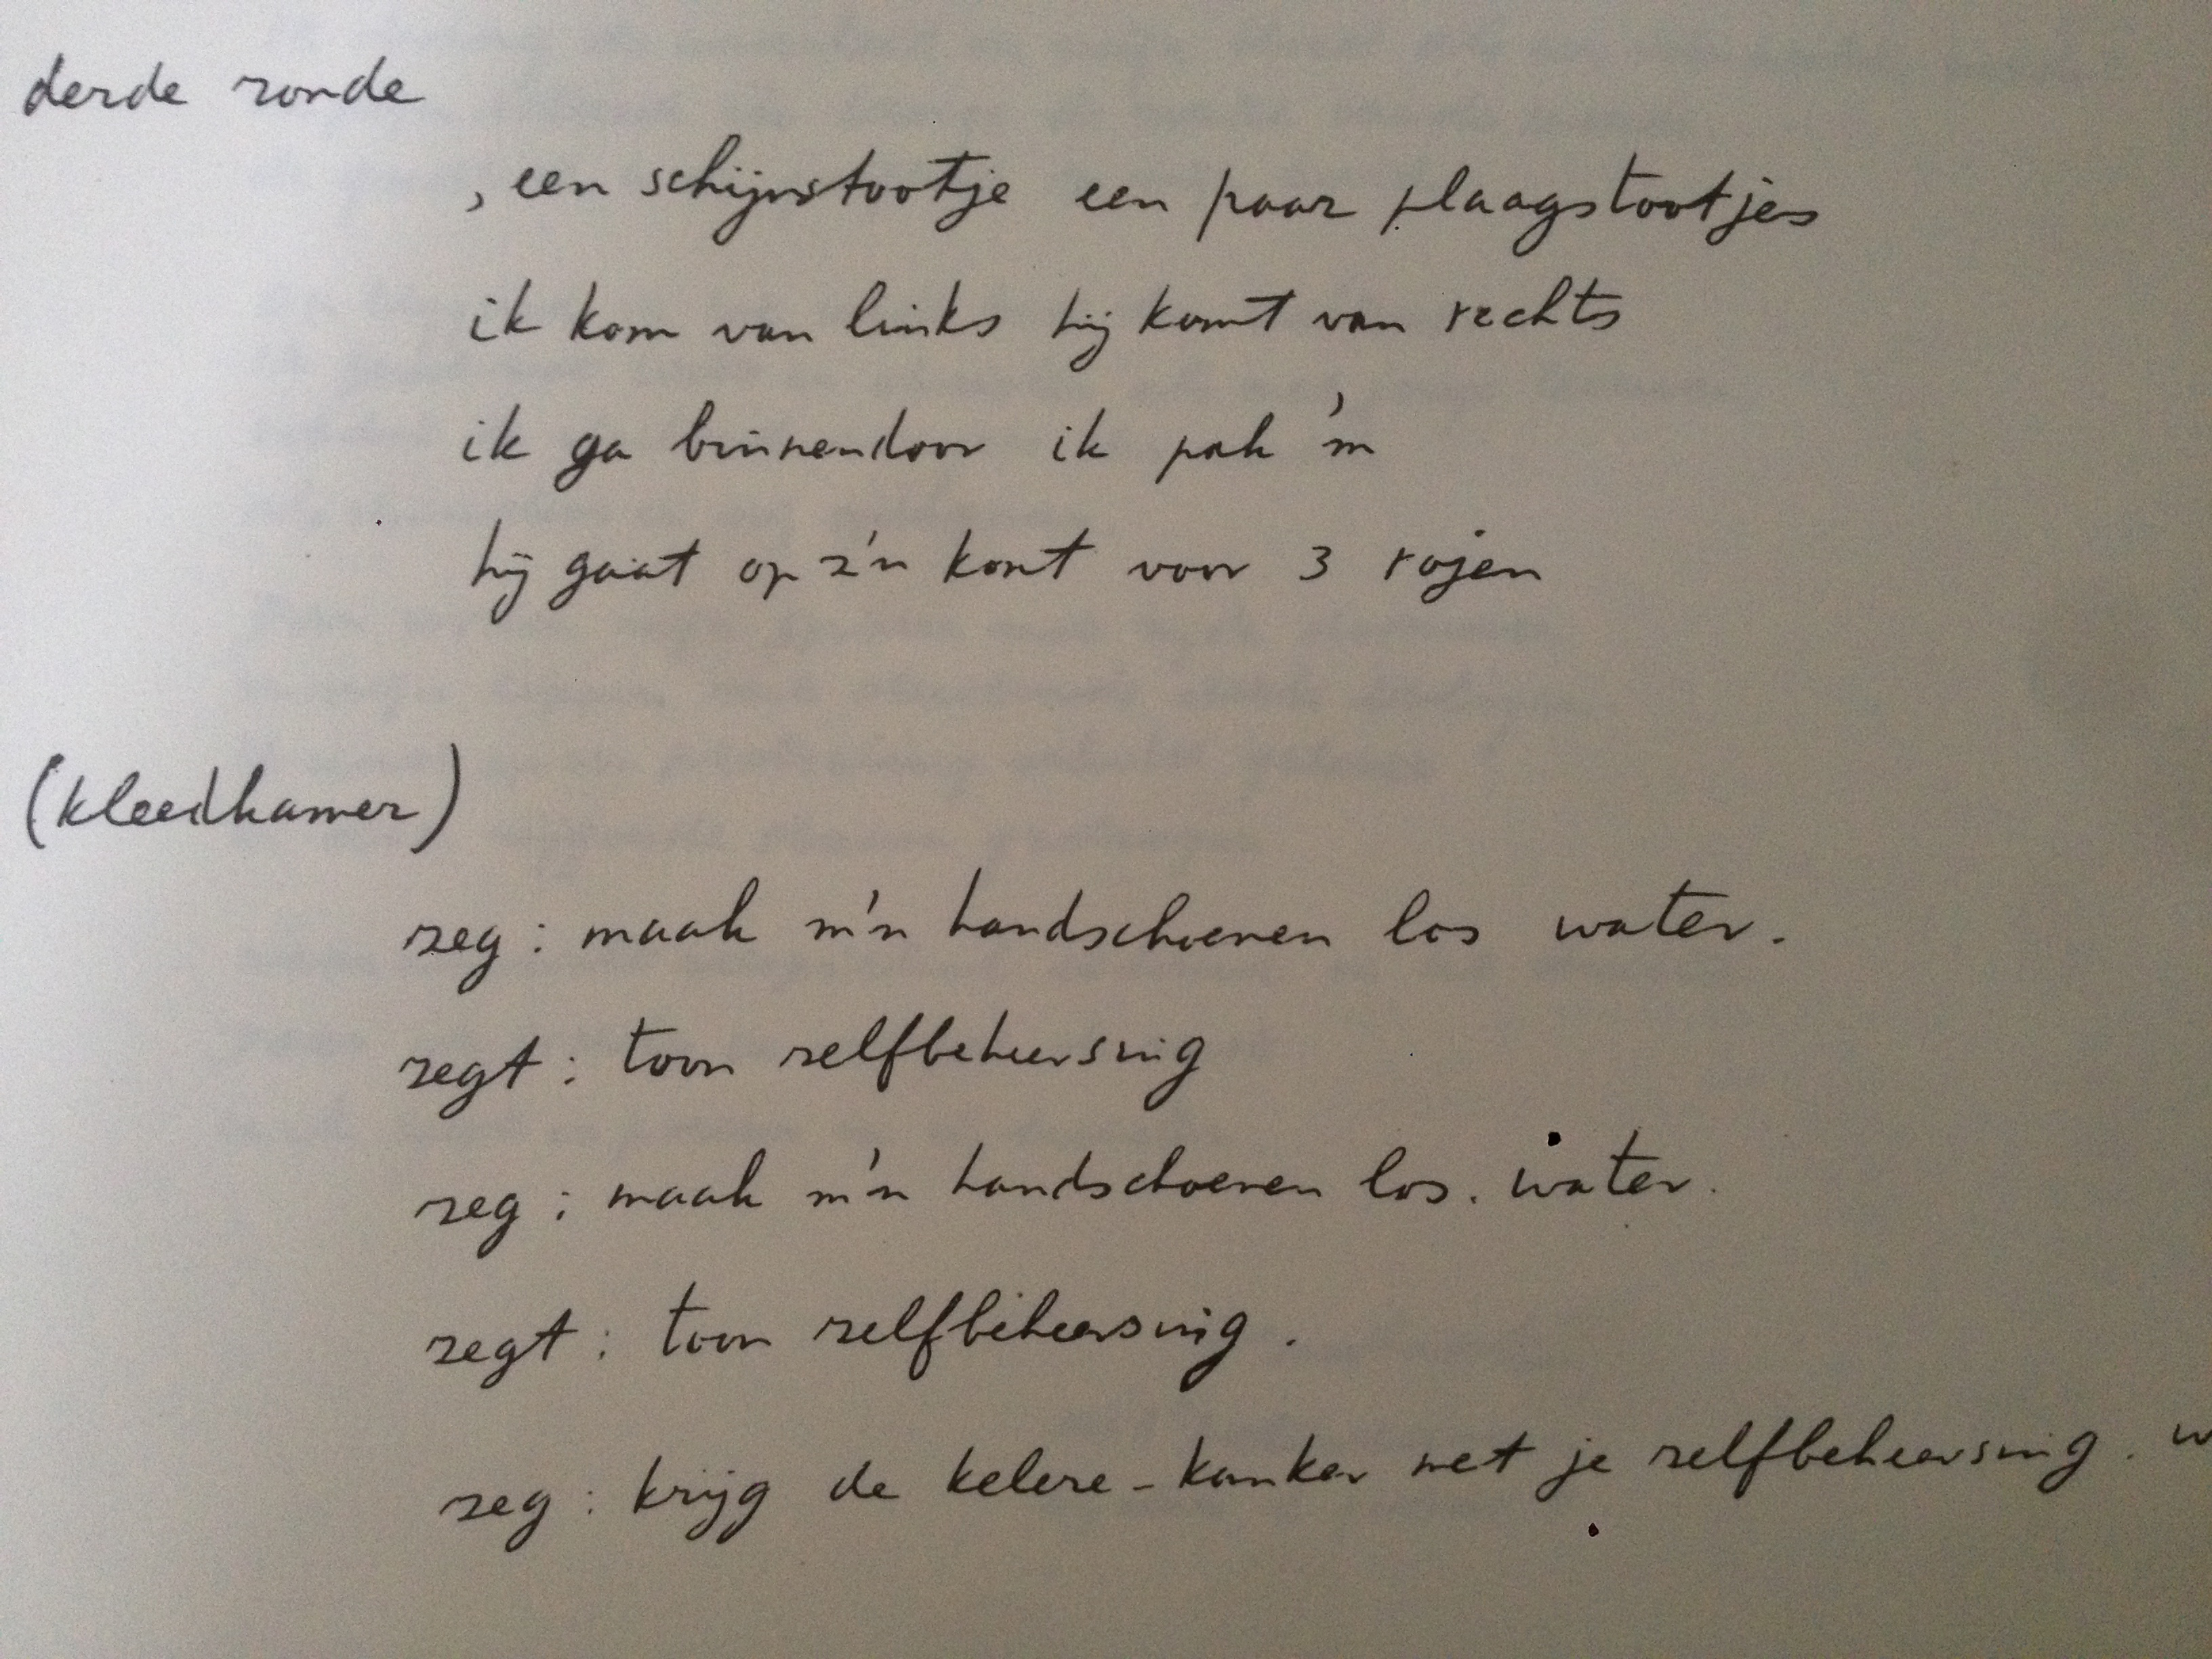 derde ronde
, een schijnstootje een paar plaagstootjes
ik kom van links hij komt van rechts
ik ga binnendoor ik pak 'm
hij gaat op z'n kont voor 3 rojen
(kleedkamer)
zeg : maak m'n handschoenen los water.
zegt : toon zelfbeheersing
zeg : maak m'n handschoenen los. water.
zegt : toon zelfbeheersing.
zeg : krijg de kelere-kanker met je zelfbeheersing. w